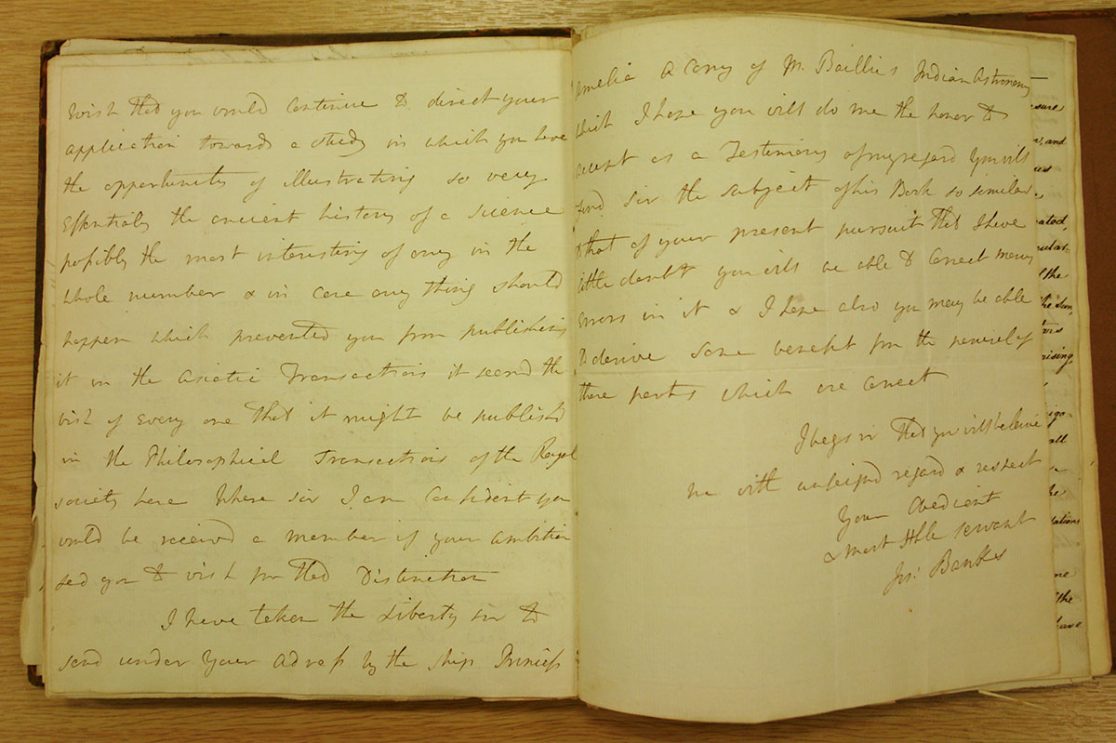 wish that you would Continue to direct your
application towards a study in which you have
the opportunity of illustrating so very
Essentialy the ancient history of a science
possibly the most interesting of any in the
whole number & in Case any thing should
happen which prevented you from publishing
it in the Asiatic Transactions it seemd the
wish of Every one that it might be publishd
in the Philosophical Transactions of the Royal
society here Where sir I am Confident you
would be received a member if your ambition
led you to wish for that Distinction
I have taken the Liberty sir to
send under Your adress by the ship Princess
Amelia a Copy of Mr Baillie's Indian Astronomy
which I hope you will do me the honor to
accept as a Testimony of my regard You will
find Sir the subject of his Book so similar
to that of your present pursuit that I have
little doubt you will be able to Correct many
Errors in it & I hope also you may be able
to derive some benefit from the perusal of
those parts which are Correct
I beg sir that you will beleive
me with unfeignd regard & respect
Your Obedient
& most Hble servant
Jos: Banks
sure
and
ated,
the
the sun,
rising,
all
the
lations
me
the
have